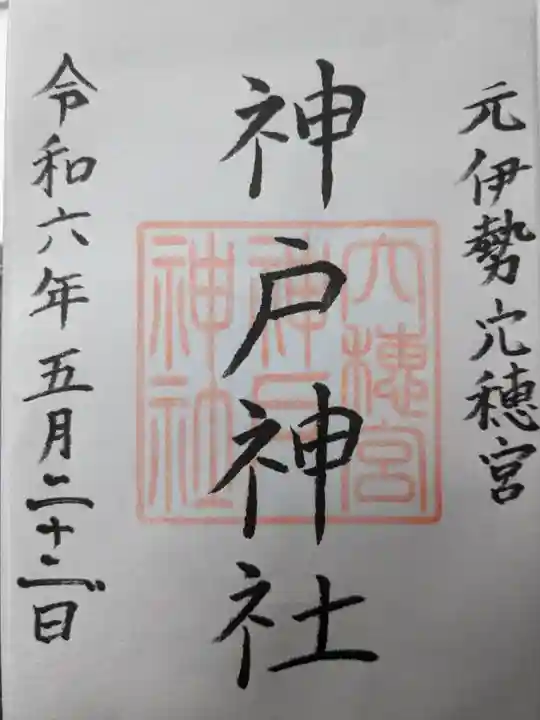 元伊勢穴穂宮
神戸神社
穴穂宮
神戸
神社
令和六年五月二十二日